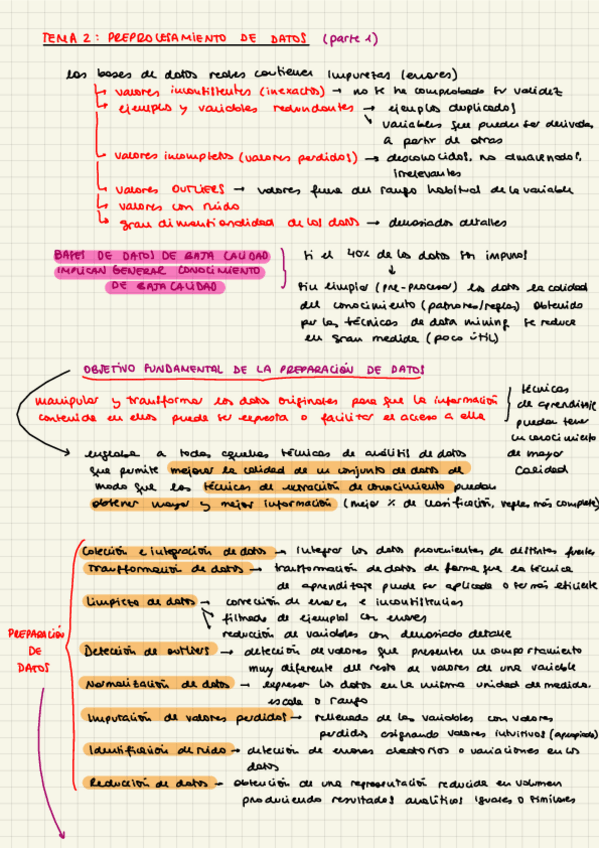 TEMA 2: PREPROCESAMIENTO DE DATOS (parte 1)
las bases de datos reales contienen impurezas (errores)
valores inconsistentes (inexactos) → no se ha comprobado su validez
ejemplos y variables redundantes → ejemplos duplicados
variables que pueden ser derivadas
a partir de otras
valores incompletos (valores perdidos) → desconocidos, no almacenados,
irrelevantes
valores OUTLIERS → valores fuera del rango habitual de la variable
valores con ruido
gran dimensionalidad de los datos → demasiados detalles
BASES DE DATOS DE BAJA CALIDAD
IMPLICAN GENERAR CONOCIMIENTO
DE BAJA CALIDAD
si el 40% de los datos son impuros
↓
sin limpiar (pre-procesar) los datos la calidad
del conocimiento (patrones/reglas) obtenido
por las técnicas de data mining se reduce
en gran medida (poco útil)
OBJETIVO FUNDAMENTAL DE LA PREPARACIÓN DE DATOS
manipular y transformar los datos originales para que la información
contenida en ellos puede ser expuesta o facilitar el acceso a ella
técnicas
de aprendizaje
puedan tener
un conocimiento
de mayor
calidad
engloba a todas aquellas técnicas de análisis de datos
que permite mejorar la calidad de un conjunto de datos de
modo que las técnicas de extracción de conocimiento puedan
obtener mayor y mejor información (mejor % de clasificación, reglas más completas)
PREPARACIÓN
DE
DATOS
Colección e integración de datos → integrar los datos provenientes de distintas fuentes
Transformación de datos → transformación de datos de forma que la técnica
de aprendizaje puede ser aplicada o ser más eficiente
Limpieza de datos → corrección de errores e inconsistencias
filtrado de ejemplos con errores
reducción de variables con demasiado detalle
Detección de outliers → detección de valores que presentan un comportamiento
muy diferente del resto de valores de una variable
Normalización de datos → expresar los datos en la misma unidad de medida,
escala o rango
Imputación de valores perdidos → rellenado de las variables con valores
perdidos asignando valores intuitivos (apropiado)
Identificación de ruido → detección de errores aleatorios o variaciones en los
datos
Reducción de datos → obtención de una representación reducida en volumen
produciendo resultados analíticos iguales o similares